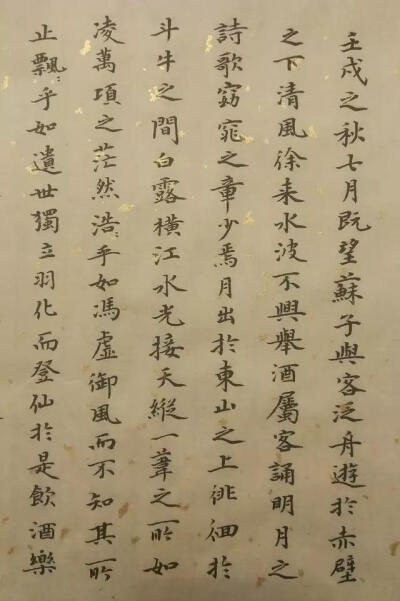 壬戌之秋七月既望蘇子與客泛舟遊於赤壁
之下清風徐来水波不興舉酒屬客誦明月之
詩歌窈窕之章少焉月出於東山之上徘徊於
斗牛之間白露横江水光接天縱一葦之所如
凌萬頃之茫然浩〻乎如馮虚御風而不知其所
止飄〻乎如遺世獨立羽化而登仙於是飲酒樂